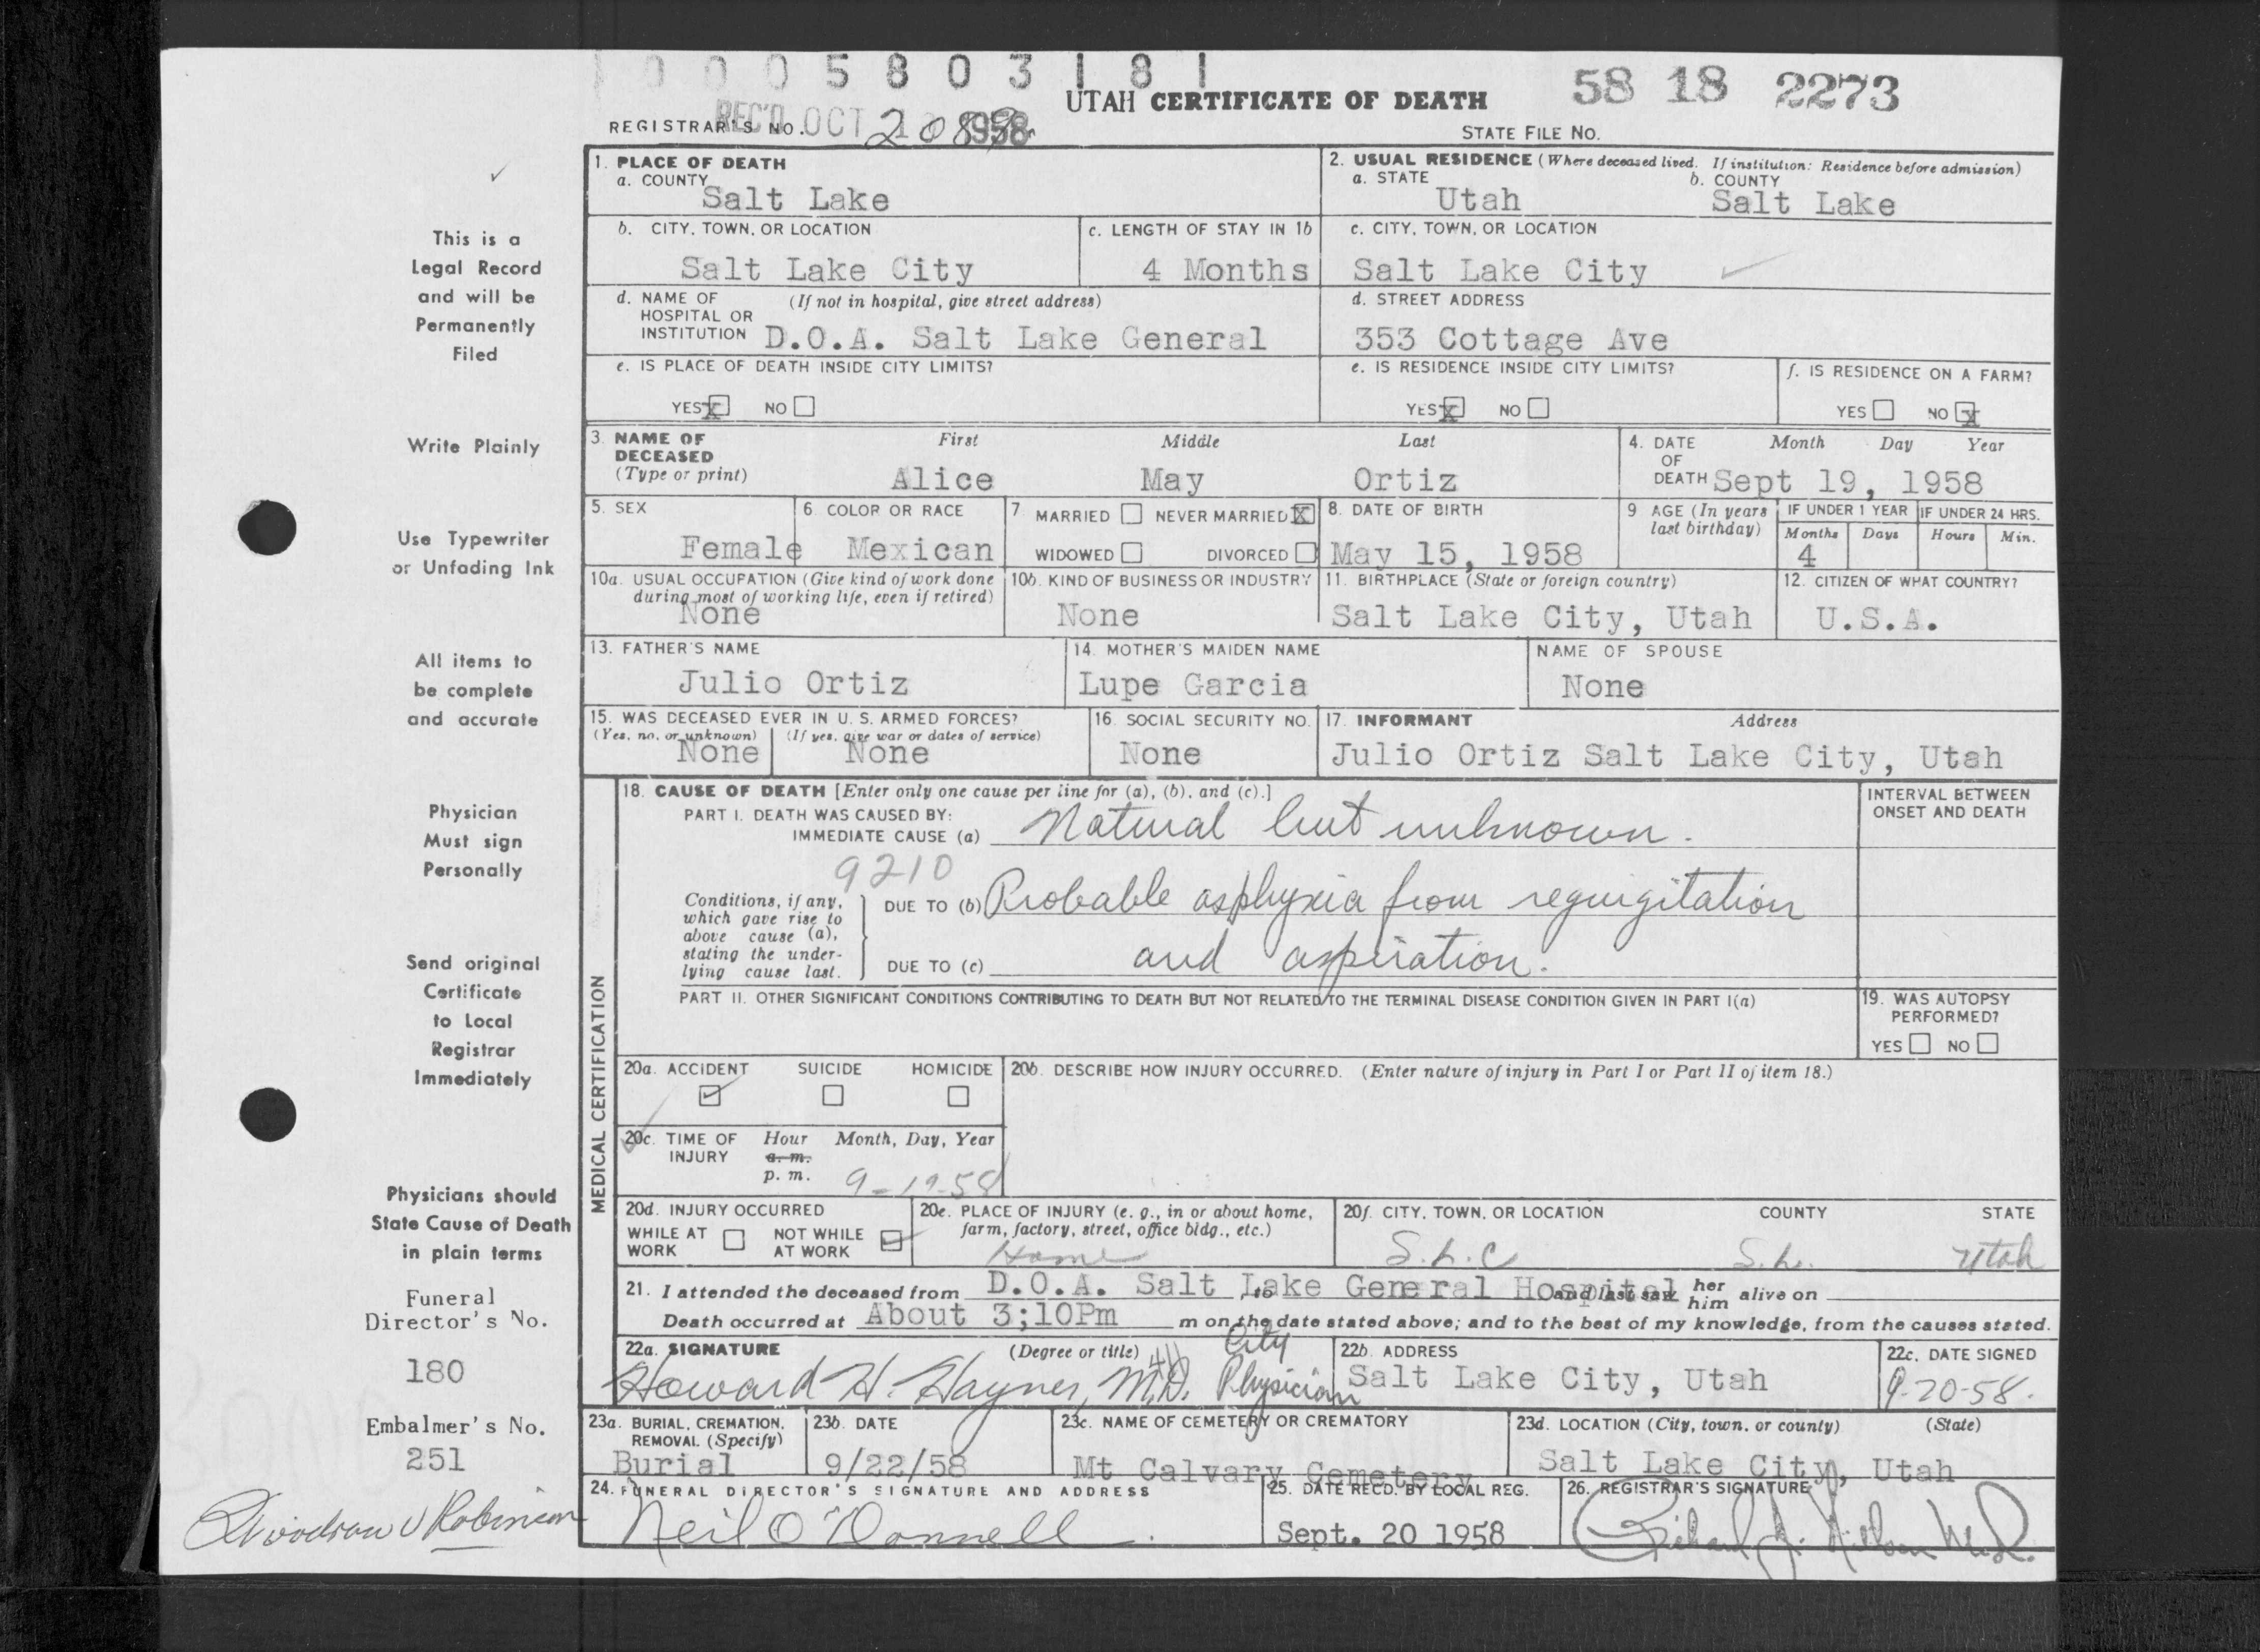 0005803181
58 18 2273
UTAH CERTIFICATE OF DEATH
REC'D OCT 1958
REGISTRAR'S NO. 2089
STATE FILE NO.
This is a
Legal Record
and will be
Permanently
Filed
Write Plainly
Use Typewriter
or Unfading Ink
All items to
be complete
and accurate
Physician
Must sign
Personally
Send original
Certificate
to Local
Registrar
Immediately
Physicians should
State Cause of Death
in plain terms
Funeral
Director's No.
180
Embalmer's No.
251
1. PLACE OF DEATH
a. COUNTY
Salt Lake
2. USUAL RESIDENCE (Where deceased lived. If institution: Residence before admission)
a. STATE b. COUNTY
Utah Salt Lake
b. CITY, TOWN, OR LOCATION
Salt Lake City
c. LENGTH OF STAY IN 1b
4 Months
c. CITY, TOWN, OR LOCATION
Salt Lake City
d. NAME OF (If not in hospital, give street address)
HOSPITAL OR
INSTITUTION D.O.A. Salt Lake General
d. STREET ADDRESS
353 Cottage Ave
e. IS PLACE OF DEATH INSIDE CITY LIMITS?
YES X NO
e. IS RESIDENCE INSIDE CITY LIMITS?
YES X NO
f. IS RESIDENCE ON A FARM?
YES NO X
3. NAME OF First Middle Last
DECEASED
(Type or print) Alice May Ortiz
4. DATE Month Day Year
OF
DEATH Sept 19, 1958
5. SEX
Female
6 COLOR OR RACE
Mexican
7 MARRIED NEVER MARRIED X
WIDOWED DIVORCED
8. DATE OF BIRTH
May 15, 1958
9 AGE (In years
last birthday)
IF UNDER 1 YEAR IF UNDER 24 HRS.
Months Days Hours Min.
4
10a. USUAL OCCUPATION (Give kind of work done
during most of working life, even if retired)
None
10b. KIND OF BUSINESS OR INDUSTRY
None
11. BIRTHPLACE (State or foreign country)
Salt Lake City, Utah
12. CITIZEN OF WHAT COUNTRY?
U.S.A.
13. FATHER'S NAME
Julio Ortiz
14. MOTHER'S MAIDEN NAME
Lupe Garcia
NAME OF SPOUSE
None
15. WAS DECEASED EVER IN U. S. ARMED FORCES?
(Yes, no, or unknown) (If yes, give war or dates of service)
None None
16. SOCIAL SECURITY NO.
None
17. INFORMANT Address
Julio Ortiz Salt Lake City, Utah
MEDICAL CERTIFICATION
18. CAUSE OF DEATH [Enter only one cause per line for (a), (b), and (c).]
INTERVAL BETWEEN
ONSET AND DEATH
PART I. DEATH WAS CAUSED BY:
IMMEDIATE CAUSE (a) Natural but unknown.
9210
Conditions, if any,
which gave rise to
above cause (a),
stating the under-
lying cause last.
DUE TO (b) Probable asphyxia from regurgitation
DUE TO (c) and aspiration.
PART II. OTHER SIGNIFICANT CONDITIONS CONTRIBUTING TO DEATH BUT NOT RELATED TO THE TERMINAL DISEASE CONDITION GIVEN IN PART I(a)
19. WAS AUTOPSY
PERFORMED?
YES NO
20a. ACCIDENT SUICIDE HOMICIDE
20b. DESCRIBE HOW INJURY OCCURRED. (Enter nature of injury in Part I or Part II of item 18.)
20c. TIME OF Hour Month, Day, Year
INJURY a. m.
p. m. 9-19-58
20d. INJURY OCCURRED
WHILE AT NOT WHILE
WORK AT WORK
20e. PLACE OF INJURY (e. g., in or about home,
farm, factory, street, office bldg., etc.)
Home
20f. CITY, TOWN, OR LOCATION COUNTY STATE
S.L.C S.L. Utah
21. I attended the deceased from D.O.A. Salt Lake General Hospital, to and last saw her him alive on
Death occurred at About 3;10Pm m on the date stated above; and to the best of my knowledge, from the causes stated.
22a. SIGNATURE (Degree or title) City
Howard H. Haynes, M.D. Physician
22b. ADDRESS
Salt Lake City, Utah
22c. DATE SIGNED
9-20-58.
23a. BURIAL, CREMATION,
REMOVAL (Specify)
Burial
23b. DATE
9/22/58
23c. NAME OF CEMETERY OR CREMATORY
Mt Calvary Cemetery
23d. LOCATION (City, town, or county) (State)
Salt Lake City, Utah
24. FUNERAL DIRECTOR'S SIGNATURE AND ADDRESS
Neil O'Donnell
25. DATE RECD. BY LOCAL REG.
Sept. 20 1958
26. REGISTRAR'S SIGNATURE
Richard
Robinson